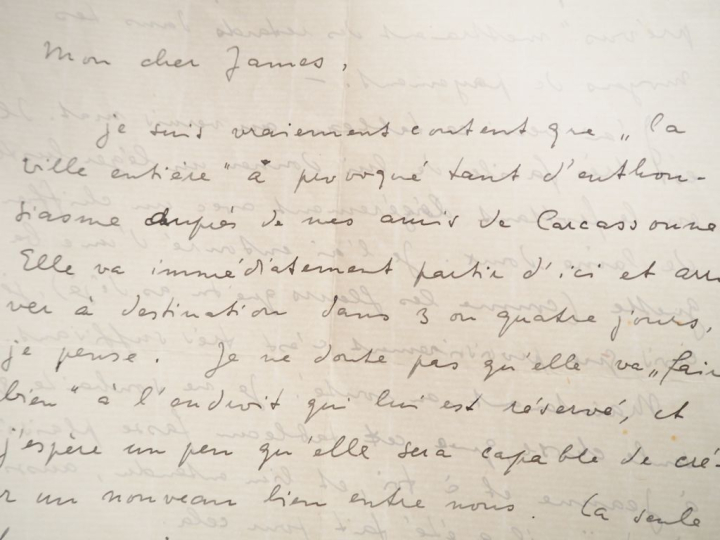 Mon cher James,
je suis vraiement content que „la
ville entière" a provoqué tant d'enthou-
siasme auprès de nos amis de Carcassonne
Elle va immédiatement partir d'ici et arri
ver à destination dans 3 ou quatre jours,
je pense. Je ne doute pas qu'elle va „fair
bien" à l'endroit qui lui est réservé, et
j'espère un peu qu'elle sera capable de cré-
r un nouveau lien entre nous. La seule